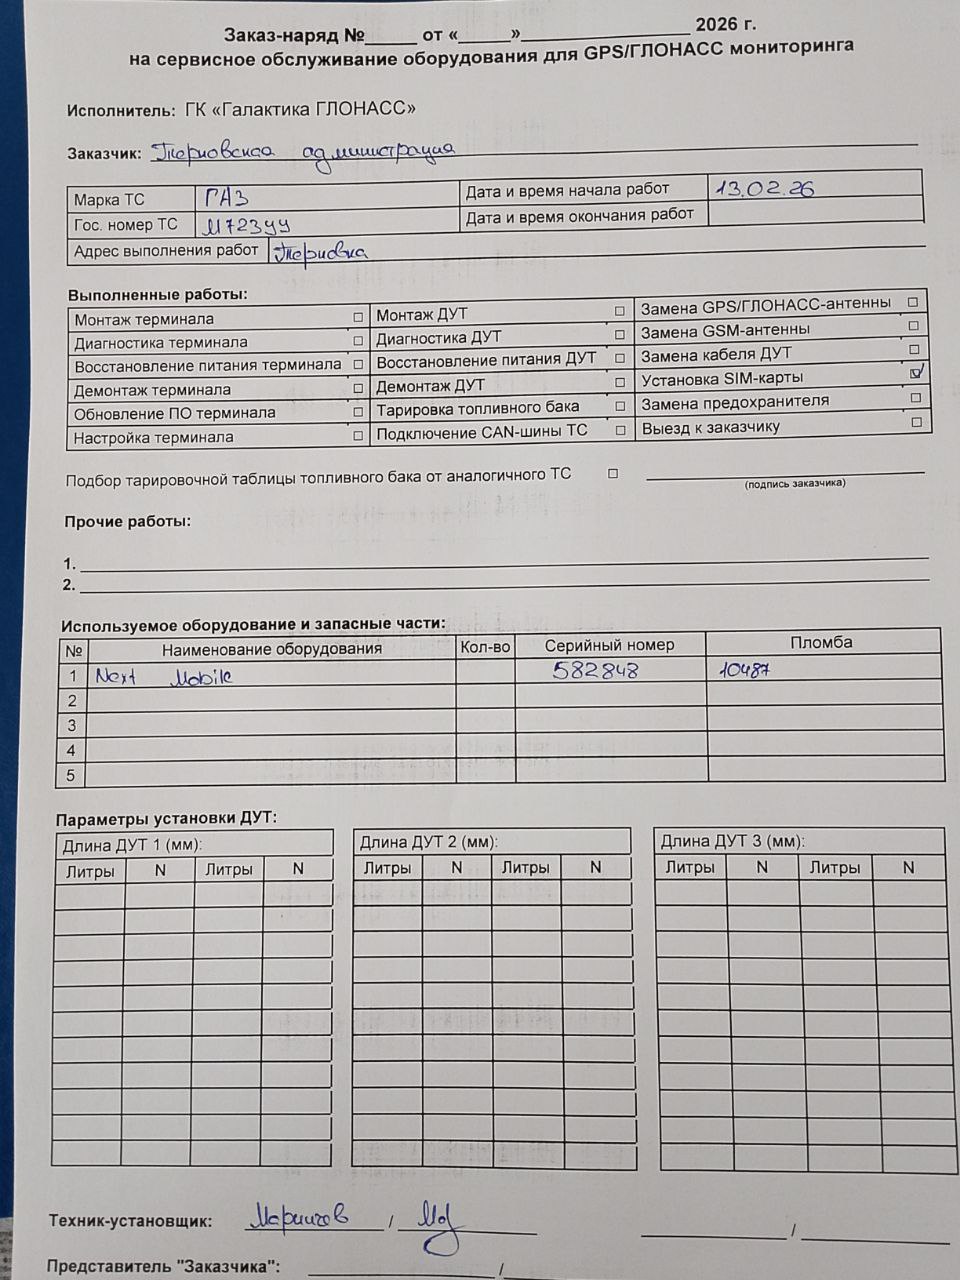 Заказ-наряд №_____ от «_____»________________ 2026 г.
на сервисное обслуживание оборудования для GPS/ГЛОНАСС мониторинга
Исполнитель: ГК «Галактика ГЛОНАСС»
Заказчик: Терновская администрация
Марка ТС ГАЗ Дата и время начала работ 13.02.26
Гос. номер ТС М723УУ Дата и время окончания работ
Адрес выполнения работ Терновка
Выполненные работы:
Монтаж терминала □ Монтаж ДУТ □ Замена GPS/ГЛОНАСС-антенны □
Диагностика терминала □ Диагностика ДУТ □ Замена GSM-антенны □
Восстановление питания терминала □ Восстановление питания ДУТ □ Замена кабеля ДУТ □
Демонтаж терминала □ Демонтаж ДУТ □ Установка SIM-карты ☑
Обновление ПО терминала □ Тарировка топливного бака □ Замена предохранителя □
Настройка терминала □ Подключение CAN-шины ТС □ Выезд к заказчику □
Подбор тарировочной таблицы топливного бака от аналогичного ТС □
(подпись заказчика)
Прочие работы:
1.
2.
Используемое оборудование и запасные части:
№ Наименование оборудования Кол-во Серийный номер Пломба
1 Next Mobile 582848 10487
2
3
4
5
Параметры установки ДУТ:
Длина ДУТ 1 (мм): Длина ДУТ 2 (мм): Длина ДУТ 3 (мм):
Литры N Литры N Литры N Литры N Литры N Литры N
Техник-установщик: / /
Представитель "Заказчика": /